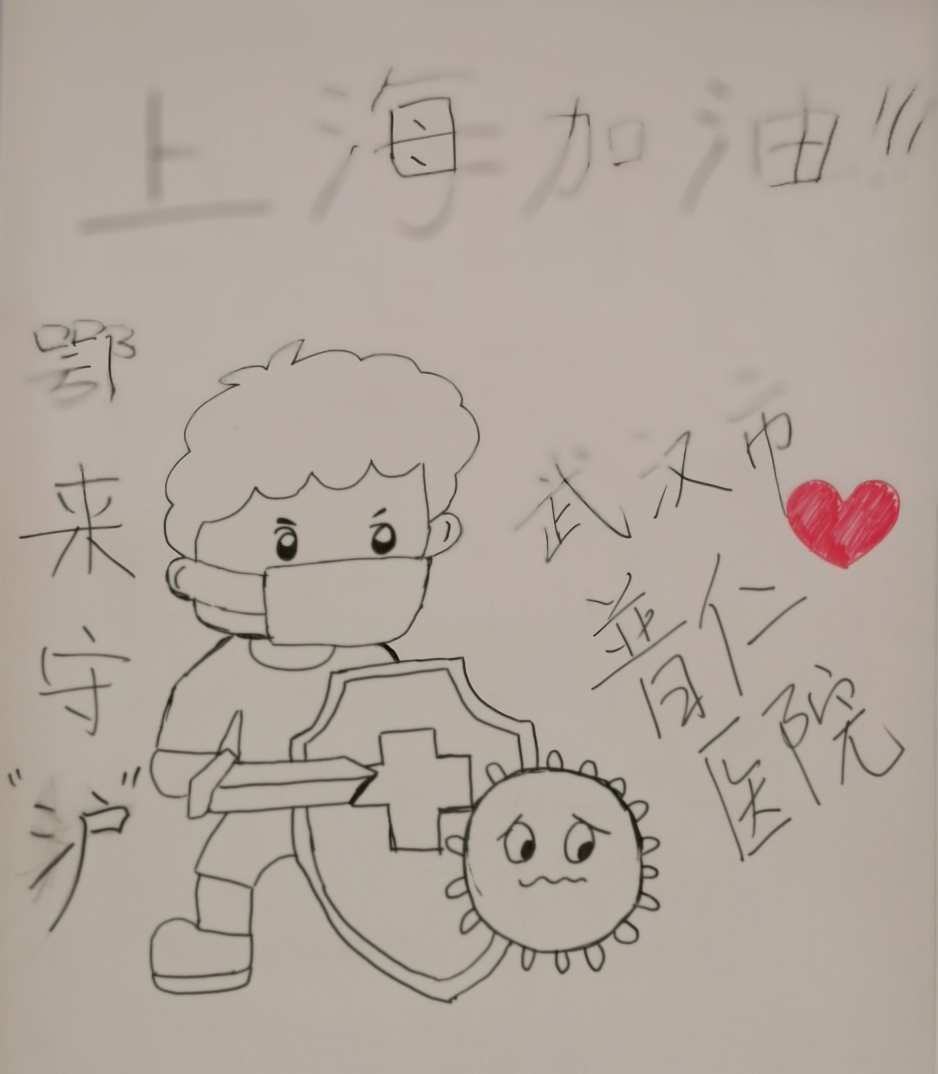 上海加油!!!
鄂来守“沪”
武汉市
普仁
医院